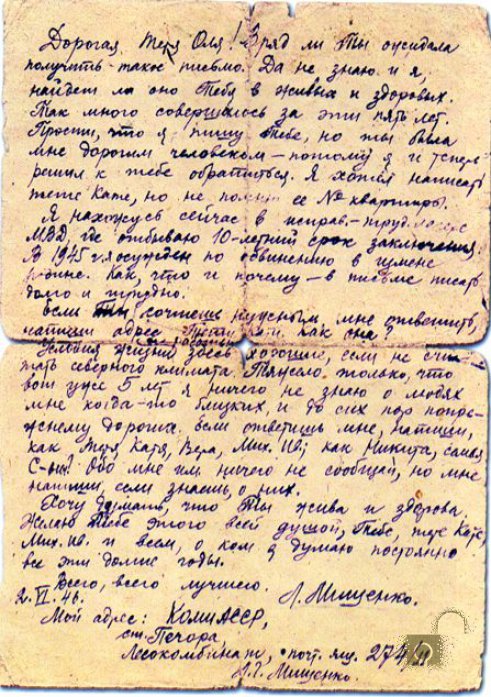 Дорогая тетя Оля! Вряд ли Ты ожидала
получить такое письмо. Да не знаю и я,
найдет ли оно Тебя в живых и здоровых.
Так много совершилось за эти пять лет.
Прости, что я пишу Тебе, но ты была
мне дорогим человеком – потому я и теперь
решил к тебе обратиться. Я хотел написать
тете Кате, но не помню ее № квартиры.
Я нахожусь сейчас в исправ.-труд. лагере
МВД, где отбываю 10-летний срок заключения
В 1945 г. я осужден по обвинению в измене
родине. Как, что и почему – в письме писать
долго и трудно.
Если Ты сочтешь нужным мне ответить,
напиши адрес тети Кати. Как она?
Условия жизни и работы здесь хорошие, если не счи-
тать северного климата. Тяжело только, что
вот уже 5 лет я ничего не знаю о людях
мне когда-то близких, и до сих пор попре-
жнему дорогих. Если ответишь мне, напиши,
как тетя Катя, Вера, Мих. Ив.; как Никита,
С-вы? Обо мне им ничего не сообщай, но мне
напиши, если знаешь, о них.
Хочу думать, что Ты жива и здорова.
Желаю Тебе этого всей душой, Тебе, тете Кате,
Мих. Ив. и всем, о ком я думаю постоянно
все эти долгие годы.
Всего, всего лучшего.
2.VI.46. Л. Мищенко.
Мой адрес: Коми АССР,
ст. Печора,
Лесокомбинат, почт. ящ. 274/
Л.Г. Мищенко.